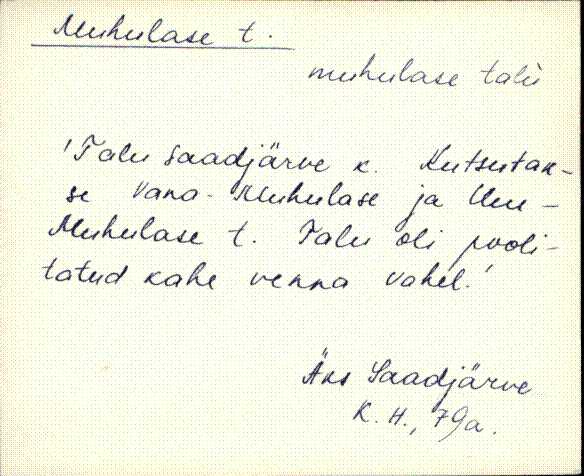 Muhulase t.
muhulase talu
'Talu Saadjärve k. Kutsutak-
se Vana-Muhulase ja Uue-
Muhulase t. Talu oli pooli-
tatud kahe venna vahel.'
Äks Saadjärve
K. H., 79a.